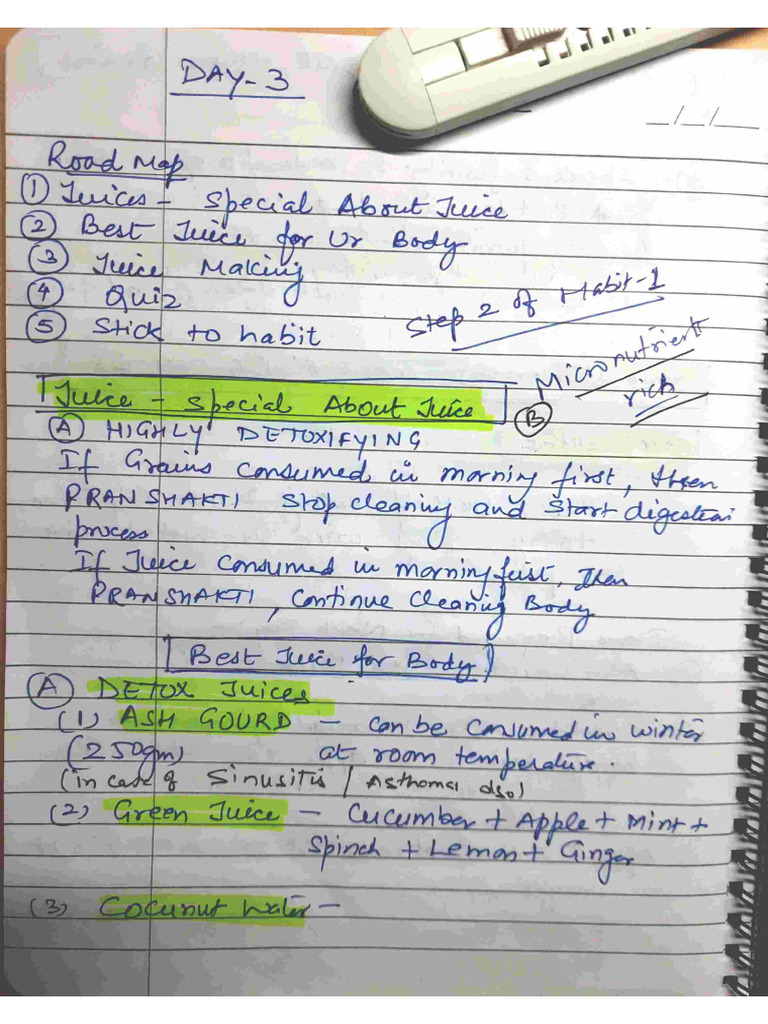 DAY-3
__/__/__
Road Map
① Juices - Special About Juice
② Best Juice for Ur Body
③ Juice Making
④ Quiz
⑤ Stick to habit
Step 2 of Habit-1
Juice - Special About Juice
Ⓑ Micronutrient
rich
Ⓐ HIGHLY DETOXIFYING
If Grains consumed in morning first, then
PRANSHAKTI stop cleaning and start digestion
process
If Juice consumed in morning first, then
PRANSHAKTI, continue cleaning Body
Best Juice for Body
Ⓐ DETOX Juices
(1) ASH GOURD - can be consumed in winter
(250gm) at room temperature.
(in case of Sinusitis / Asthoma also)
(2) Green Juice - Cucumber + Apple + Mint +
Spinch + Lemon + Ginger
(3) Cocunut Water -